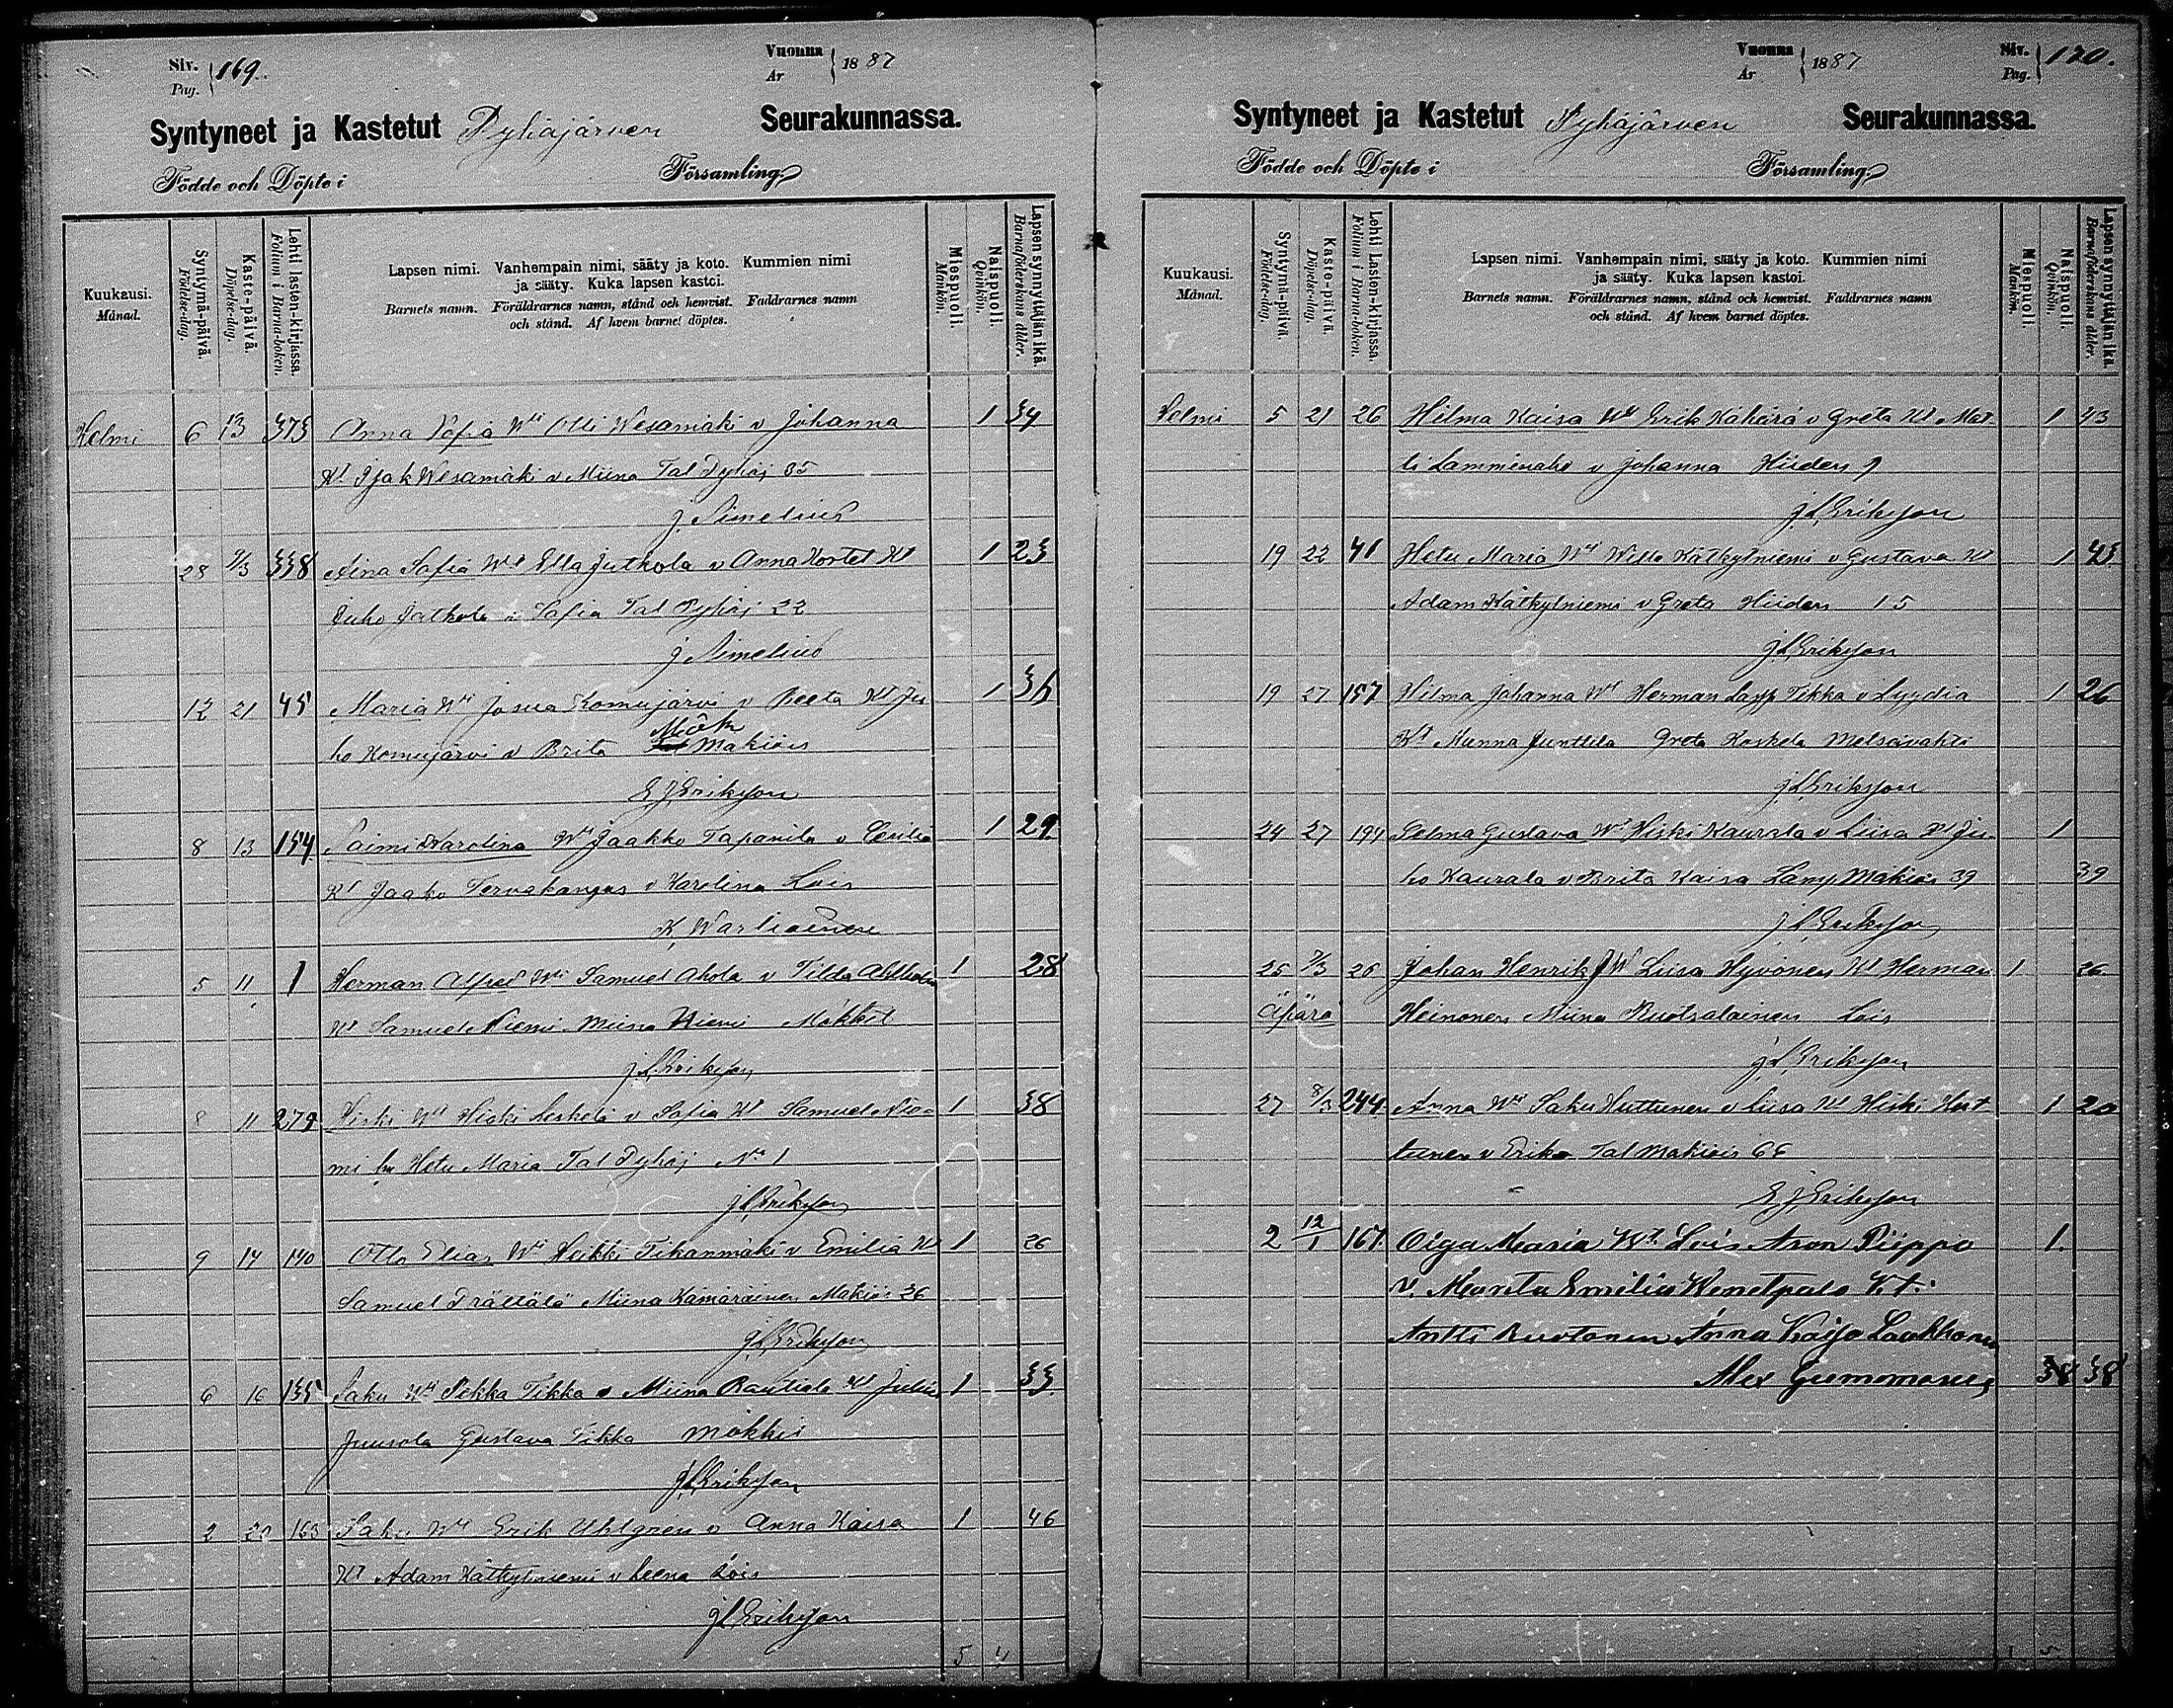 Siv. Pag. 169. Vuonna År 1887
Syntyneet ja Kastetut Pyhäjärven Seurakunnassa.
Födde och Döpte i Församling.
Kuukausi. Månad.
Syntymä-päivä. Födelse-dag.
Kaste-päivä. Döpelse-dag.
Lehti lasten-kirjassa. Folium i Barna-boken.
Lapsen nimi. Vanhempain nimi, sääty ja koto. Kummien nimi
ja sääty. Kuka lapsen kastoi.
Barnets namn. Föräldrarnes namn, stånd och hemvist. Faddrarnes namn
och stånd. Af hvem barnet döptes.
Miespuoli. Mankön.
Naispuoli. Qvinkön.
Lapsen synnyttäjän ikä. Barnaföderskans ålder.
Helmi 6 13 373 Anna Sofia Wti Olli Wesamäki v Johanna 1 34
Kt Isak Wesamäki v Miina Tal Pyhäj 35
J Simelius
28 7/3 338 Aina Sofia Wt Ella Jutkola v Anna Kortet Kt 1 23
Juho Jatkola v Sofia Tal Pyhäj 22
J Simelius
12 21 45 Maria Wti Josua Komujärvi v Reeta Kt Ju 1 36
ho Komujärvi v Brita Mäkiäis
E J Eriksson
8 13 154 Saimi Karolina Wti Jaakko Tapanila v Cecilia 1 29
Kt Jaako Tervakangas v Karolina Lois
K Warliainen
5 11 1 Herman Alfred Wti Samuel Ahola v Tilda 1 28
Kt Samuel Niemi Miina Niemi Mökkit
J L Eriksson
8 11 279 Hiski Wti Hiski Leskelä v Sofia Kt Samuel Nie- 1 38
mi Hetu Maria Tal Pyhäj No 1
J L Eriksson
9 14 140 Otto Elias Wti Heikki Tikanmäki v Emilia Kt 1 26
Samuel Prättälä Miina Kämäräinen Mäkiäis 26
J L Eriksson
6 16 135 Saku Wti Pekka Tikka v Miina Rautiola Kt Julius 1 33
Juusola Gustava Tikka Mökkis
J L Eriksson
2 20 163 Saku Wti Erik Uhlgren v Anna Kaisa 1 46
Kt Adam Kätkytniemi v Leena Lois
J L Eriksson
5 4
Vuonna År 1887 Siv. Pag. 170.
Syntyneet ja Kastetut Pyhäjärven Seurakunnassa.
Födde och Döpte i Församling.
Kuukausi. Månad.
Syntymä-päivä. Födelse-dag.
Kaste-päivä. Döpelse-dag.
Lehti Lasten-kirjassa. Folium i Barna-boken.
Lapsen nimi. Vanhempain nimi, sääty ja koto. Kummien nimi
ja sääty. Kuka lapsen kastoi.
Barnets namn. Föräldrarnes namn, stånd och hemvist. Faddrarnes namn
och stånd. Af hvem barnet döptes.
Miespuoli. Mankön.
Naispuoli. Qvinkön.
Lapsen synnyttäjän ikä. Barnaföderskans ålder.
Helmi 5 21 26 Hilma Kaisa Wt Erik Kähärä v Greta Kt Mat- 1 43
ti Lamminaho v Johanna Hiiden 9
J L Eriksson
19 22 41 Hetu Maria Wti Wille Kätkytniemi v Gustava Kt 1 43
Adam Kätkytniemi v Greta Hiiden 15
J L Eriksson
19 27 157 Hilma Johanna Wt Herman Lamp Tikka v Lyydia 1 26
Kt Manna Junttila Greta Koskela Metsävahti
J L Eriksson
24 27 194 Selma Gustava Wt Hiski Kaurala v Liisa Kt Ju- 1
ho Kaurala v Brita Kaisa Lamp Mäkiäis 39 39
J L Eriksson
25 7/3 26 Johan Henrik Liisa Hyvönen Kt Herman 1 26
Äpärä Heinonen Miina Ruotsalainen Lois
J L Eriksson
27 8/3 244 Anna Wti Saku Huttunen v Liisa Kt Hiski Hut 1 20
tunen v Erika Tal Mäkiäis 66
E J Eriksson
2 12/1 167 Olga Maria Wt. Lois Aron Piippo 1.
v. Maria Emilia Wenetpalo K.t:
Antti Ruotanen Anna Kaisa Laukkanen
Alex Gummerus 38 38
1 5